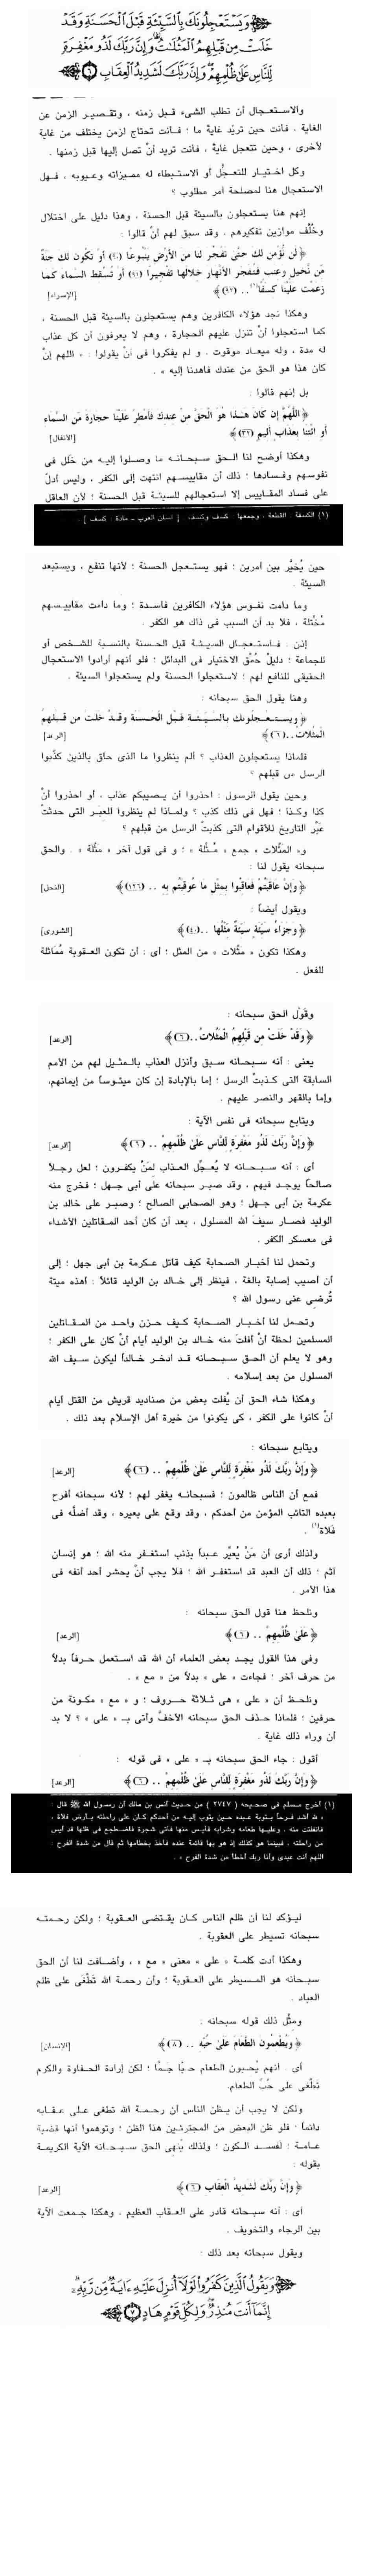 ﴿ وَيَسْتَعْجِلُونَكَ بِالسَّيِّئَةِ قَبْلَ الْحَسَنَةِ وَقَدْ
خَلَتْ مِن قَبْلِهِمُ الْمَثُلَاتُ وَإِنَّ رَبَّكَ لَذُو مَغْفِرَةٍ
لِّلنَّاسِ عَلَى ظُلْمِهِمْ وَإِنَّ رَبَّكَ لَشَدِيدُ الْعِقَابِ ٦ ﴾
والاستعجال أن تطلب الشىء قبل زمنه ، وتقصير الزمن عن
الغاية ، فأنت حين تريد غاية ما ؛ فأنت تحتاج لزمن يختلف من غاية
لأخرى ، وحين تتعجل غاية ، فأنت تريد أنْ تصل إليها قبل زمنها .
وكل اختيار للتعجُّل أو الاستبطاء له مميزاته وعيوبه ، فهل
الاستعجال هنا لمصلحة أمر مطلوب ؟
إنهم هنا يستعجلون بالسيئة قبل الحسنة ، وهذا دليل على اختلال
وخُلْف موازين تفكيرهم ، وقد سبق لهم أنْ قالوا :
﴿ لَن نُّؤْمِنَ لَكَ حَتَّىٰ تَفْجُرَ لَنَا مِنَ الْأَرْضِ يَنبُوعًا (٩٠) أَوْ تَكُونَ لَكَ جَنَّةٌ
مِّن نَّخِيلٍ وَعِنَبٍ فَتُفَجِّرَ الْأَنْهَارَ خِلَالَهَا تَفْجِيرًا (٩١) أَوْ تُسْقِطَ السَّمَاءَ كَمَا
زَعَمْتَ عَلَيْنَا كِسَفًا(١).. (٩٢) ﴾ [الإسراء]
وهكذا نجد هؤلاء الكافرين وهم يستعجلون بالسيئة قبل الحسنة ،
كما استعجلوا أنْ تنزل عليهم الحجارة ، وهم لا يعرفون أن كل عذاب
له مدة ، وله ميعاد موقوت . و لم يفكروا فى أنْ يقولوا : « اللهم إنْ
كان هذا هو الحق من عندك فاهدنا إليه » .
بل إنهم قالوا :
﴿ اللَّهُمَّ إِن كَانَ هَٰذَا هُوَ الْحَقَّ مِنْ عِندِكَ فَأَمْطِرْ عَلَيْنَا حِجَارَةً مِّنَ السَّمَاءِ
أَوِ ائْتِنَا بِعَذَابٍ أَلِيمٍ (٣٢) ﴾ [الأنفال]
وهكذا أوضح لنا الحق سبحانه ما وصلوا إليه من خَلَل فى
نفوسهم وفسادها ؛ ذلك أن مقاييسهم انتهت إلى الكفر ، وليس أدلّ
على فساد المقاييس إلا استعجالهم للسيئة قبل الحسنة ؛ لأن العاقل
(١) الكسفة : القطعة ، وجمعها كسف وكسف . [ لسان العرب - مادة : كسف ] .
حين يُخيَّر بين أمرين ؛ فهو يستعجل الحسنة ؛ لأنها تنفع ، ويستبعد
السيئة .
وما دامت نفوس هؤلاء الكافرين فاسدة ؛ وما دامت مقاييسهم
مُخْتلة ، فلا بد أن السبب فى ذاك هو الكفر .
إذن : فاستعجال السيئة قبل الحسنة بالنسبة للشخص أو
للجماعة ؛ دليلُ حُمْق الاختيار فى البدائل ؛ فلو أنهم أرادوا الاستعجال
الحقيقى للنافع لهم ؛ لاستعجلوا الحسنة ولم يستعجلوا السيئة .
وهنا يقول الحق سبحانه :
﴿ وَيَسْتَعْجِلُونَكَ بِالسَّيِّئَةِ قَبْلَ الْحَسَنَةِ وَقَدْ خَلَتْ مِن قَبْلِهِمُ
الْمَثُلَاتُ .. (٦) ﴾ [الرعد]
فلماذا يستعجلون العذاب ؟ ألم ينظروا ما الذى حاق بالذين كذَّبوا
الرسل من قبلهم ؟
وحين يقول الرسول : احذروا أن يصيبكم عذاب ، أو احذروا أنْ
كذا وكذا ؛ فهل فى ذلك كذب ؟ ولماذا لم ينظروا للعبَر التى حدثتْ
عَبْر التاريخ للأقوام التى كذبتْ الرسل من قبلهم ؟
و« المَثُلات » جمع « مَثُلَة » ؛ و فى قول آخر « مُثْلة » . والحق
سبحانه يقول لنا :
﴿ وَإِنْ عَاقَبْتُمْ فَعَاقِبُوا بِمِثْلِ مَا عُوقِبْتُم بِهِ .. (١٢٦) ﴾ [النحل]
ويقول أيضاً :
﴿ وَجَزَاءُ سَيِّئَةٍ سَيِّئَةٌ مِّثْلُهَا .. (٤٠) ﴾ [الشورى]
وهكذا تكون « مَثُلات » من المثل ؛ أى : أن تكون العقوبة مُمَاثلة
للفعل .
وقَوْل الحق سبحانه :
﴿ وَقَدْ خَلَتْ مِن قَبْلِهِمُ الْمَثُلَاتُ .. (٦) ﴾ [الرعد]
يعنى : أنه سبحانه سبق وأنزل العذاب بالمثيل لهم من الأمم
السابقة التى كذبتْ الرسل ؛ إما بالإبادة إن كان ميئوساً من إيمانهم،
وإما بالقهر والنصر عليهم .
ويتابع سبحانه فى نفس الآية :
﴿ وَإِنَّ رَبَّكَ لَذُو مَغْفِرَةٍ لِّلنَّاسِ عَلَىٰ ظُلْمِهِمْ .. (٦) ﴾ [الرعد]
أى : أنه سبحانه لا يُعجِّل العذاب لمَنْ يكفرون ؛ لعل رجلاً
صالحاً يوجد فيهم ، وقد صبر سبحانه على أبى جهل ؛ فخرج منه
عكرمة بن أبى جهل ؛ وهو الصحابى الصالح ؛ وصبر على خالد بن
الوليد فصار سيف الله المسلول ، بعد أن كان أحد المقاتلين الأشداء
فى معسكر الكفر .
وتحمل لنا أخبار الصحابة كيف قاتل عكرمة بن أبى جهل ؛ إلى
أن أصيب إصابة بالغة ، فينظر إلى خالد بن الوليد قائلاً : أهذه ميتة
تُرضِى عنى رسول الله ؟
وتحمل لنا أخبار الصحابة كيف حزن واحد من المقاتلين
المسلمين لحظة أنْ أفلتَ منه خالد بن الوليد أيام أنْ كان على الكفر ؛
وهو لا يعلم أن الحق سبحانه قد ادخر خالداً ليكون سيف الله
المسلول من بعد إسلامه .
وهكذا شاء الحق أن يُفلت بعض من صناديد قريش من القتل أيام
أنْ كانوا على الكفر ، كى يكونوا من خيرة أهل الإسلام بعد ذلك .
ويتابع سبحانه :
﴿ وَإِنَّ رَبَّكَ لَذُو مَغْفِرَةٍ لِّلنَّاسِ عَلَىٰ ظُلْمِهِمْ .. (٦) ﴾ [الرعد]
فمع أن الناس ظالمون ؛ فسبحانه يغفر لهم ؛ لأنه سبحانه أفرح
بعبده التائب المؤمن من أحدكم ، وقد وقع على بعيره ، وقد أضلَّه فى
فلاة(١) .
ولذلك أرى أن مَنْ يُعيِّر عبداً بذنب استغفر منه الله ؛ هو إنسان
آثم ؛ ذلك أن العبد قد استغفر الله ؛ فلا يجب أنْ يحشر أحد أنفه فى
هذا الأمر .
ونلحظ هنا قول الحق سبحانه :
﴿ عَلَىٰ ظُلْمِهِمْ .. (٦) ﴾ [الرعد]
وفى هذا القول يجد بعض العلماء أن الله قد استعمل حرفاً بدلاً
من حرف آخر ؛ فجاءت « على » بدلاً من « مع » .
ونلحظ أن « على » هى ثلاثة حروف ؛ و « مع » مكونة من
حرفين ؛ فلماذا حذف الحق سبحانه الأخفَّ وأتى بـ « على » ؟ لا بد
أن وراء ذلك غاية .
أقول : جاء الحق سبحانه بـ « على » فى قوله :
﴿ وَإِنَّ رَبَّكَ لَذُو مَغْفِرَةٍ لِّلنَّاسِ عَلَىٰ ظُلْمِهِمْ .. (٦) ﴾ [الرعد]
(١) أخرج مسلم فى صحيحه ( ٢٧٤٧ ) من حديث أنس بن مالك أن رسول الله ﷺ قال :
« لله أشد فرحاً بتوبة عبده حين يتوب إليه من أحدكم كان على راحلته بأرض فلاة ،
فانفلتت منه ، وعليها طعامه وشرابه فأيس منها فأتى شجرة فاضطجع فى ظلها قد أيس
من راحلته ، فبينما هو كذلك إذ هو بها قائمة عنده فأخذ بخطامها ثم قال من شدة الفرح :
اللهم أنت عبدى وأنا ربك أخطأ من شدة الفرح » .
ليؤكد لنا أن ظلم الناس كان يقتضى العقوبة ؛ ولكن رحمته
سبحانه تسيطر على العقوبة .
وهكذا أدت كلمة « على » معنى « مع » ، وأضافت لنا أن الحق
سبحانه هو المسيطر على العقوبة ؛ وأن رحمة الله تَطْغَى على ظلم
العباد .
ومثْل ذلك قوله سبحانه :
﴿ وَيُطْعِمُونَ الطَّعَامَ عَلَىٰ حُبِّهِ .. (٨) ﴾ [الإنسان]
أى : أنهم يُحبون الطعام حباً جَماً ؛ لكن إرادة الحفاوة والكرم
تَطْغى على حُبِّ الطعام.
ولكن لا يجب أن يظن الناس أن رحمة الله تطغى على عقابه
دائماً ؛ فلو ظن البعض من المجترئين هذا الظن ؛ وتوهموا أنها قضية
عامة ؛ لفسد الكون ؛ ولذلك يُنهى الحق سبحانه الآية الكريمة
بقوله :
﴿ وَإِنَّ رَبَّكَ لَشَدِيدُ الْعِقَابِ (٦) ﴾ [الرعد]
أى : أنه سبحانه قادر على العقاب العظيم ، وهكذا جمعت الآية
بين الرجاء والتخويف .
ويقول سبحانه بعد ذلك :
﴿ وَيَقُولُ الَّذِينَ كَفَرُوا لَوْلَا أُنزِلَ عَلَيْهِ آيَةٌ مِّن رَّبِّهِ
إِنَّمَا أَنتَ مُنذِرٌ وَلِكُلِّ قَوْمٍ هَادٍ ٧ ﴾